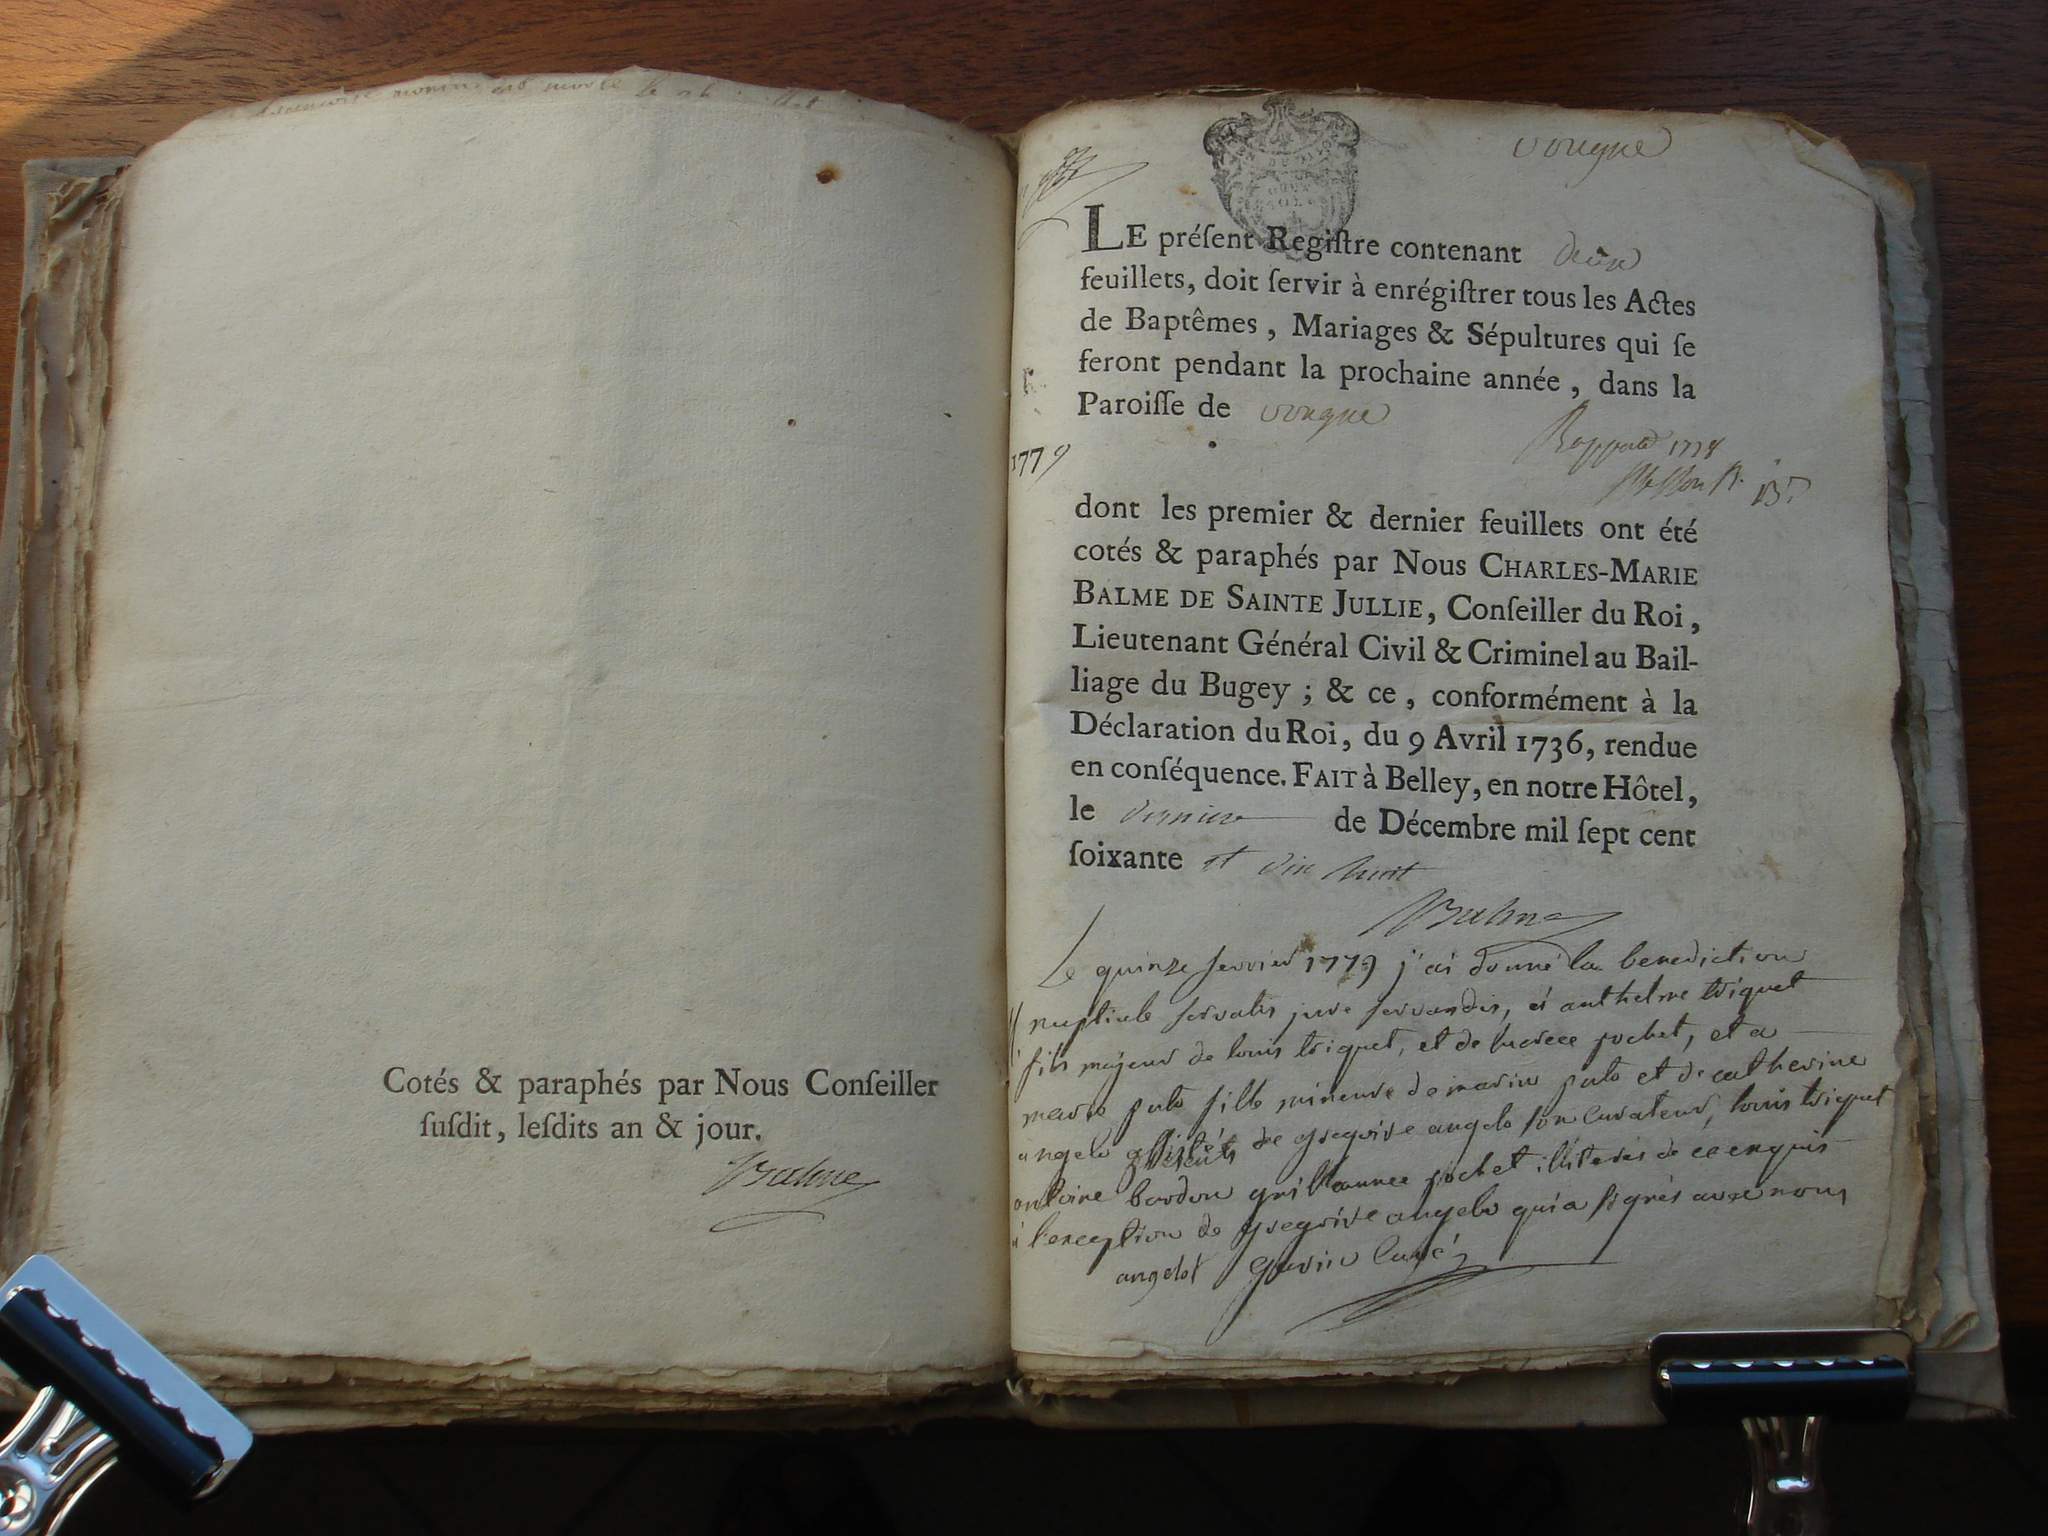 Cotés & paraphés par Nous Conſeiller
ſuſdit, leſdits an & jour.
Balme
vougne
LE préſent Regiſtre contenant deux
feuillets, doit ſervir à enrégiſtrer tous les Actes
de Baptêmes, Mariages & Sépultures qui ſe
feront pendant la prochaine année, dans la
Paroiſſe de vougne
1778
1779
dont les premier & dernier feuillets ont été
cotés & paraphés par Nous CHARLES-MARIE
BALME DE SAINTE JULLIE, Conſeiller du Roi,
Lieutenant Général Civil & Criminel au Bail-
liage du Bugey; & ce, conformément à la
Déclaration du Roi, du 9 Avril 1736, rendue
en conſéquence. FAIT à Belley, en notre Hôtel,
le dernier de Décembre mil ſept cent
ſoixante et dix huit
Balme
Le quinze fevrier 1779 j'ai donné la benediction
nuptiale servatis jure servandis, a anthelme triquet
fils majeur de louis triquet, et de pochet, et a
marie fille mineure de et de catherine
angelo de gregoire angelo son curateur, louis triquet
antoine bordon pochet de ce enquis
a l'exception de gregoire angelo qui a signés avec nous
angelot curé